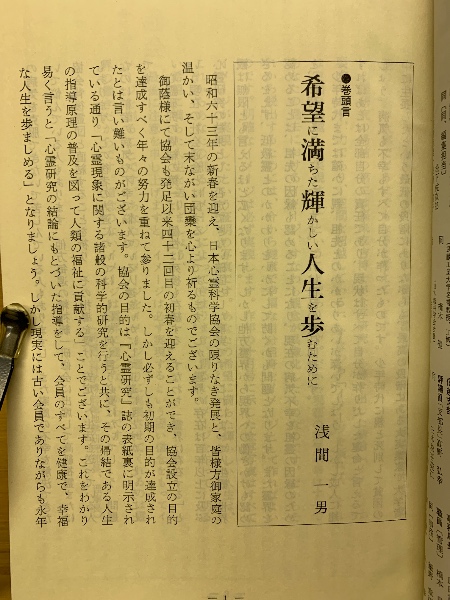 ●巻頭言
希望に満ちた輝かしい人生を歩むために
浅間一男
昭和六十三年の新春を迎え、日本心霊科学協会の限りなき発展と、皆様方御家庭の
温かい、そして末ながい団欒を心より祈るものでございます。
御蔭様にて協会も発足以来四十二回目の初春を迎えることができ、協会設立の目的
を達成すべく年々の努力を重ねて参りました。しかし必ずしも初期の目的が達成され
たとは言い難いものがございます。協会の目的は『心霊研究』誌の表紙裏に明示され
ている通り「心霊現象に関する諸般の科学的研究を行うと共に、その帰結である人生
の指導原理の普及を図って人類の福祉に貢献する」ことでございます。これをわかり
易く言うと「心霊研究の結論にもとづいた指導をして、会員のすべてを健康で、幸福
な人生を歩ましめる」となりましょう。しかし現実には古い会員でありながらも永年
— 1 —